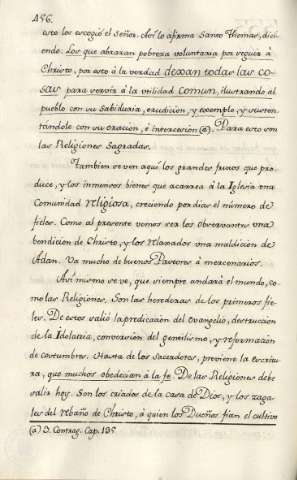 486.
esto los escogió el Señor. Así lo afirma Santo Thomas, dici-
endo. Los que abrazan pobreza voluntaria por seguir à
Christo, por esto à la verdad dexan todas las co-
sas para servir à la utilidad comun, ilustrando al
pueblo con su Sabiduria, erudicion, y exemplo, y susten-
tandole con su oracion, è intercesion (a). Para esto son
las Religiones Sagradas.
Tambien se ven aqui los grandes frutos que pro-
duce, y los inmensos bienes que acarrea à la Iglesia una
Comunidad religiosa, creciendo por dias el número de
fieles. Como al presente vemos ser los observantes una
bendicion de Christo, y los relaxados una maldicion de
Adan. Va mucho de buenos Pastores à mercenarios.
Asi mismo se ve, que siempre andará el mundo, co-
mo las Religiones. Son las herederas de los primeros fie-
les. De estos salió la predicacion del evangelio, destruccion
de la Idolatria, conversion del gentilismo, y reformacion
de costumbres. Hasta de los Sacerdotes, previene la escritu-
ra, que muchos obedecian à la fe. De las Religiones debe
salir hoy. Son los criados de la casa de Dios, y los zaga-
les del rebaño de Christo, à quien los Dueños fian el cultivo
(a) 3. Contrag. Cap. 135.